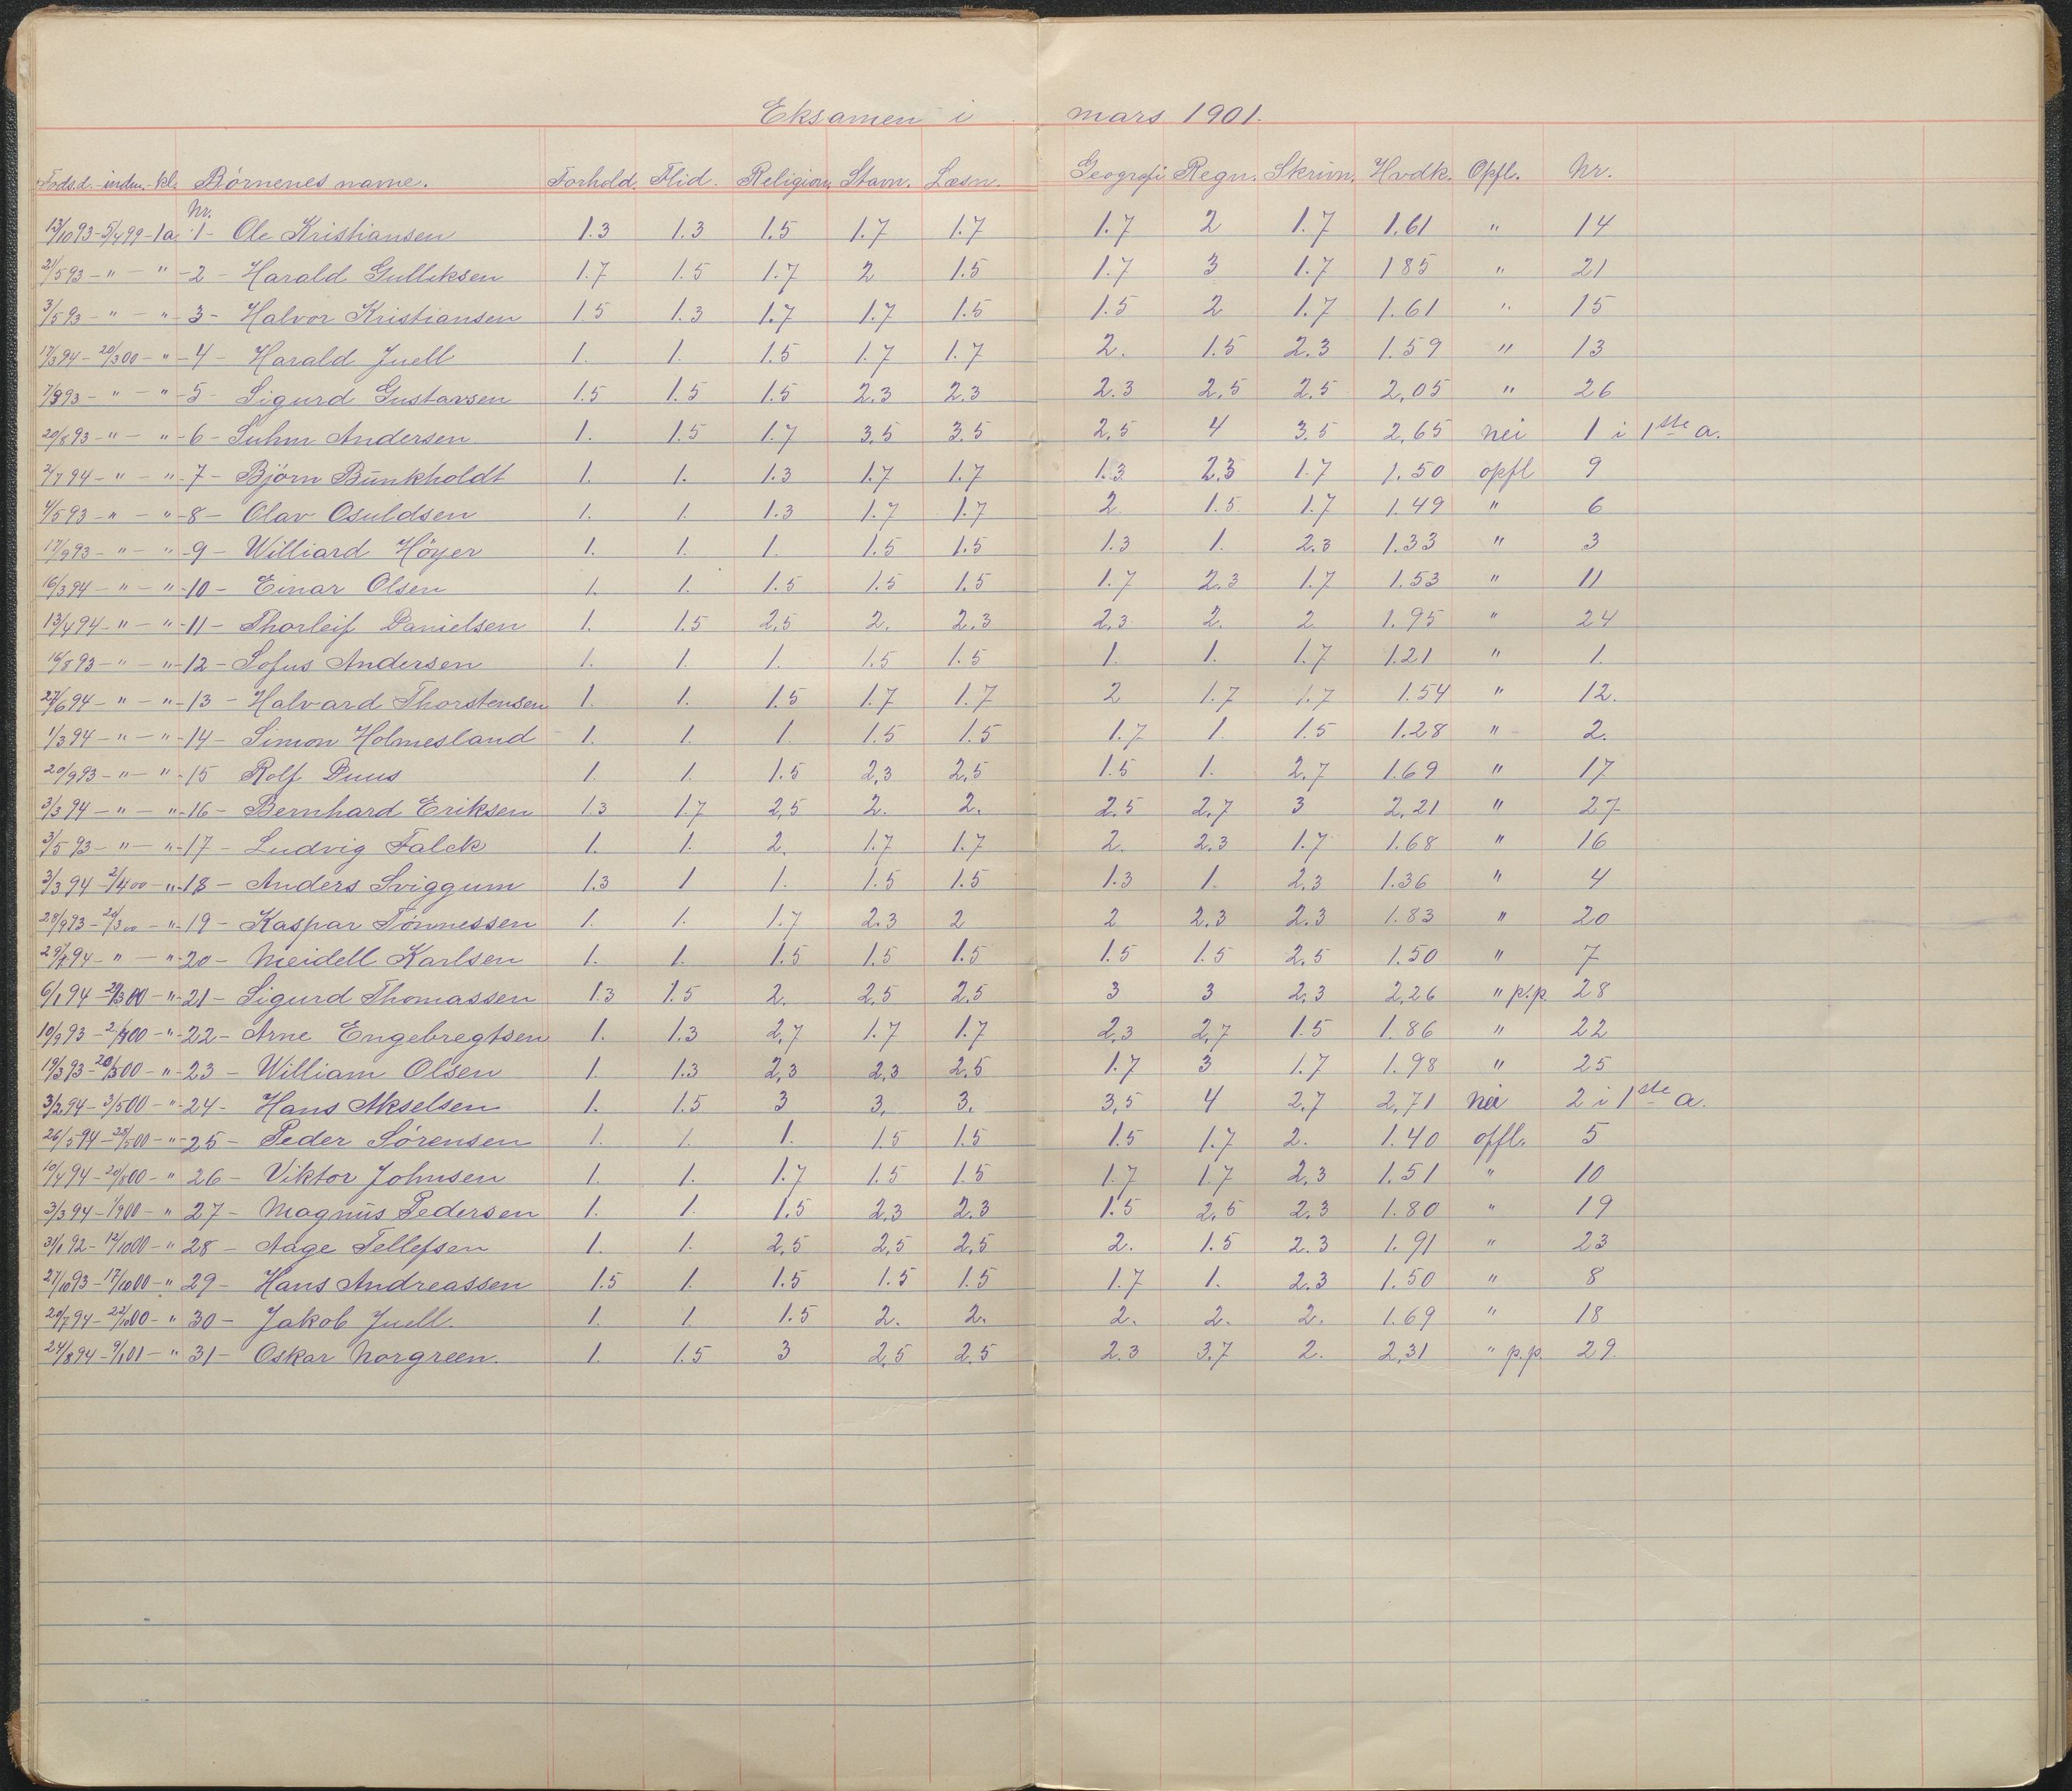 Eksamen i mars 1901.
Fødsd. - indm. - kl. Børnenes navne. Forhold. Flid. Religion. Stavn. Læsn. Geografi Regn. Skrivn. Hvdk. Opfl. Nr.
Nr.
13/10 93 - 5/4 99 - 1a. 1 - Ole Kristiansen 1.3 1.3 1.5 1.7 1.7 1.7 2 1.7 1.61 " 14
21/5 93 - " - " - 2 - Harald Gulliksen 1.7 1.5 1.7 2 1.5 1.7 3 1.7 185 " 21
3/5 93 - " - " - 3 - Halvor Kristiansen 1.5 1.3 1.7 1.7 1.5 1.5 2 1.7 1.61 " 15
17/3 94 - 20/3 00 - " - 4 - Harald Juell 1. 1. 1.5 1.7 1.7 2. 1.5 2.3 1.59 " 13
93 - " - " - 5 - Sigurd Gustavsen 1.5 1.5 1.5 2.3 2.3 2.3 2,5 2.5 2,05 " 26
20/8 93 - " - " - 6 - Suhm Andersen 1. 1.5 1.7 3,5 3.5 2,5 4 3.5 2,65 nei 1 i 1ste a.
2/7 94 - " - " - 7 - Bjørn Bunkholdt 1. 1. 1.3 1.7 1.7 1.3 2,3 1.7 1.50 opfl 9
4/5 93 - " - " - 8 - Olav Osuldsen 1. 1. 1.3 1.7 1.7 2. 1.5 1.7 1.49 " 6
17/9 93 - " - " - 9 - Williard Höyer 1. 1. 1. 1.5 1.5 1.3 1. 2.3 1.33 " 3
16/3 94 - " - " - 10 - Einar Olsen 1. 1. 1.5 1.5 1.5 1.7 2.3 1.7 1.53 " 11
13/4 94 - " - " - 11 - Thorleif Danielsen 1. 1.5 2,5 2. 2.3 2,3 2. 2 1.95 " 24
16/8 93 - " - " - 12 - Sofus Andersen 1. 1. 1. 1.5 1.5 1. 1. 1.7 1.21 " 1.
27/6 94 - " - " - 13 - Halvard Thorstensen 1. 1. 1.5 1.7 1.7 2 1.7 1.7 1.54 " 12.
1/3 94 - " - " - 14 - Simon Holmesland 1. 1. 1. 1.5 1.5 1.7 1. 1.5 1.28 " 2.
20/9 93 - " - " - 15 Rolf Duus 1. 1. 1.5 2,3 2,5 1.5 1. 2.7 1.69 " 17
3/3 94 - " - " - 16 - Bernhard Eriksen 1.3 1.7 2,5 2. 2. 2.5 2,7 3 2,21 " 27
3/5 93 - " - " - 17 - Ludvig Falck 1. 1. 2. 1.7 1.7 2. 2.3 1.7 1.68 " 16
3/3 94 - 2/4 00 - " - 18 - Anders Sviggum 1.3 1 1. 1.5 1.5 1.3 1. 2.3 1.36 " 4
28/9 93 - 20/3 00 - " - 19 - Kaspar Tønnessen 1. 1. 1.7 2.3 2 2 2,3 2.3 1.83 " 20
94 - " - " - 20 - Meidell Karlsen 1. 1. 1.5 1.5 1.5 1.5 1.5 2,5 1.50 " 7
6/1 94 - 20/3 00 - " - 21 - Sigurd Thomassen 1.3 1.5 2. 2,5 2.5 3 3 2,3 2,26 " p.p. 28
10/9 93 - 2/4 00 - " - 22 - Arne Engebregtsen 1. 1.3 2,7 1.7 1.7 2,3 2,7 1.5 1.86 " 22
19/3 93 - 20/3 00 - " - 23 - William Olsen 1. 1.3 2,3 2,3 2.5 1.7 3 1.7 1.98 " 25
3/2 94 - 3/5 00 - " - 24 - Hans Akselsen 1. 1.5 3 3, 3, 3,5 4 2,7 2,71 Nei 2 i 1ste a.
26/5 94 - 28/5 00 - " - 25 - Peder Sörensen 1. 1. 1. 1.5 1.5 1.5 1.7 2. 1.40 opfl. 5
10/4 94 - 20/8 00 - " 26 - Viktor Johnsen 1. 1. 1.7 1.5 1.5 1.7 1.7 2,3 1.51 " 10
3/3 94 - 1/9 00 - " 27 - Magnus Pedersen 1. 1. 1.5 2,3 2.3 1.5 2,5 2.3 1.80 " 19
31/1 92 - 12/10 00 - " 28 - Aage Tellefsen 1. 1. 2,5 2,5 2,5 2. 1.5 2.3 1.91 " 23
27/10 93 - 17/10 00 - " 29 - Hans Andreassen 1.5 1. 1.5 1.5 1.5 1.7 1. 2.3 1.50 " 8
20/7 94 - 22/10 00 - " 30 - Jakob Juell. 1. 1. 1.5 2. 2. 2. 2. 2. 1.69 " 18
24/8 94 - 9/1 01 - " 31 - Oskar Norgreen. 1. 1.5 3 2,5 2.5 2.3 3,7 2. 2,31 " p.p. 29.